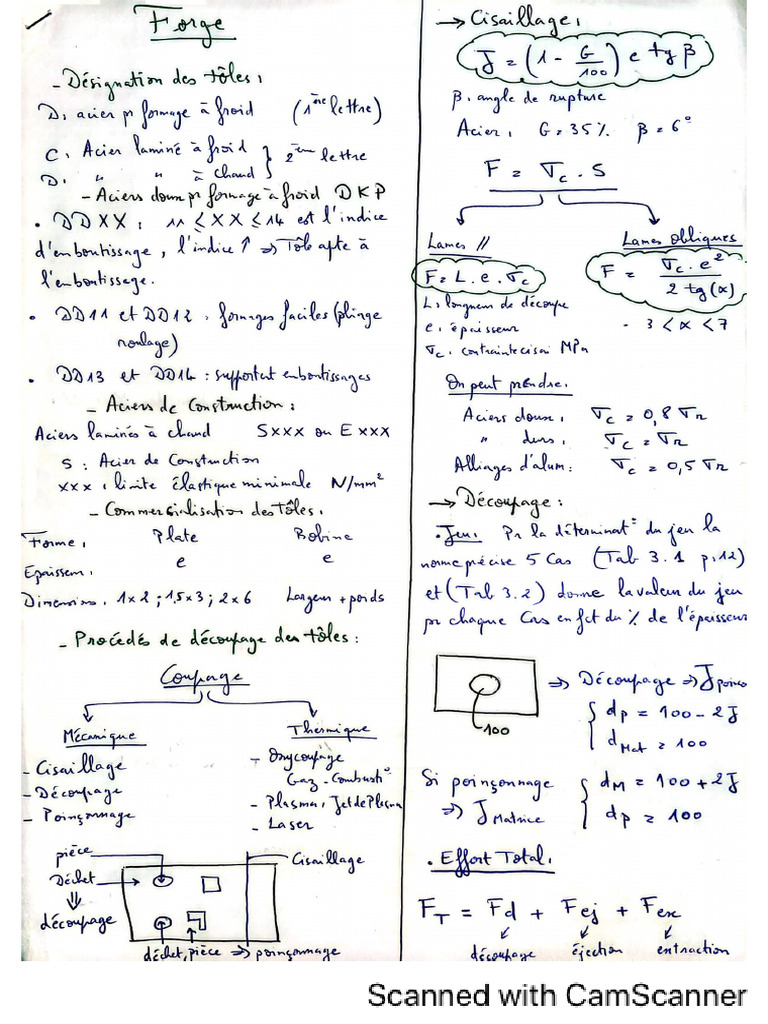 Forge
- Désignation des tôles :
D : acier pr formage à froid (1ère lettre)
C : Acier laminé à froid } 2ème lettre
D : " " à chaud
- Aciers doux pr formage à froid DKP
• DDXX : 11 ≤ XX ≤ 14 est l'indice
d'emboutissage, l'indice ↑ ⇒ Tôle apte à
l'emboutissage.
• DD11 et DD12 : formages faciles (pliage
roulage)
• DD13 et DD14 : supportent emboutissages
- Aciers de Construction :
Aciers laminés à chaud Sxxx ou Exxx
S : Acier de Construction
xxx : limite élastique minimale N/mm²
- Commercialisation des Tôles :
Forme : Plate Bobine
Epaisseur : e e
Dimensions : 1x2 ; 1,5x3 ; 2x6 Largeur + poids
- Procédés de découpage des tôles :
Coupage
Mécanique Thermique
- Cisaillage
- Découpage
- Poinçonnage
- Oxycoupage
Gaz - Combusti°
- Plasma : Jet de Plasma
- Laser
pièce
Déchet
⇓
découpage
Cisaillage
déchet, pièce ⇒ poinçonnage
→ Cisaillage :
J = (1 - G/100) e tg β
β : angle de rupture
Acier : G = 35% β = 6°
F = σc . S
Lames // Lames obliques
F = L . e . σc
F = σc . e² / 2 tg(α)
L : longueur de découpe
e : épaisseur
σc : contrainte cisai MPa
- 3 < α < 7
On peut prendre :
Aciers doux : σc = 0,8 σr
" durs : σc = σr
Alliages d'alum : σc = 0,5 σr
→ Découpage :
• Jeu : Pr la déterminat° du jeu la
norme précise 5 Cas (Tab 3.1 p.12)
et (Tab 3.2) donne la valeur du jeu
pr chaque Cas en fct du % de l'épaisseur
100
⇒ Découpage ⇒ J poinço
{ dp = 100 - 2J
dMat = 100
Si poinçonnage
⇒ J Matrice
{ dM = 100 + 2J
dp = 100
• Effort Total :
FT = Fd + Fej + Fex
découpage éjection extraction
Scanned with CamScanner